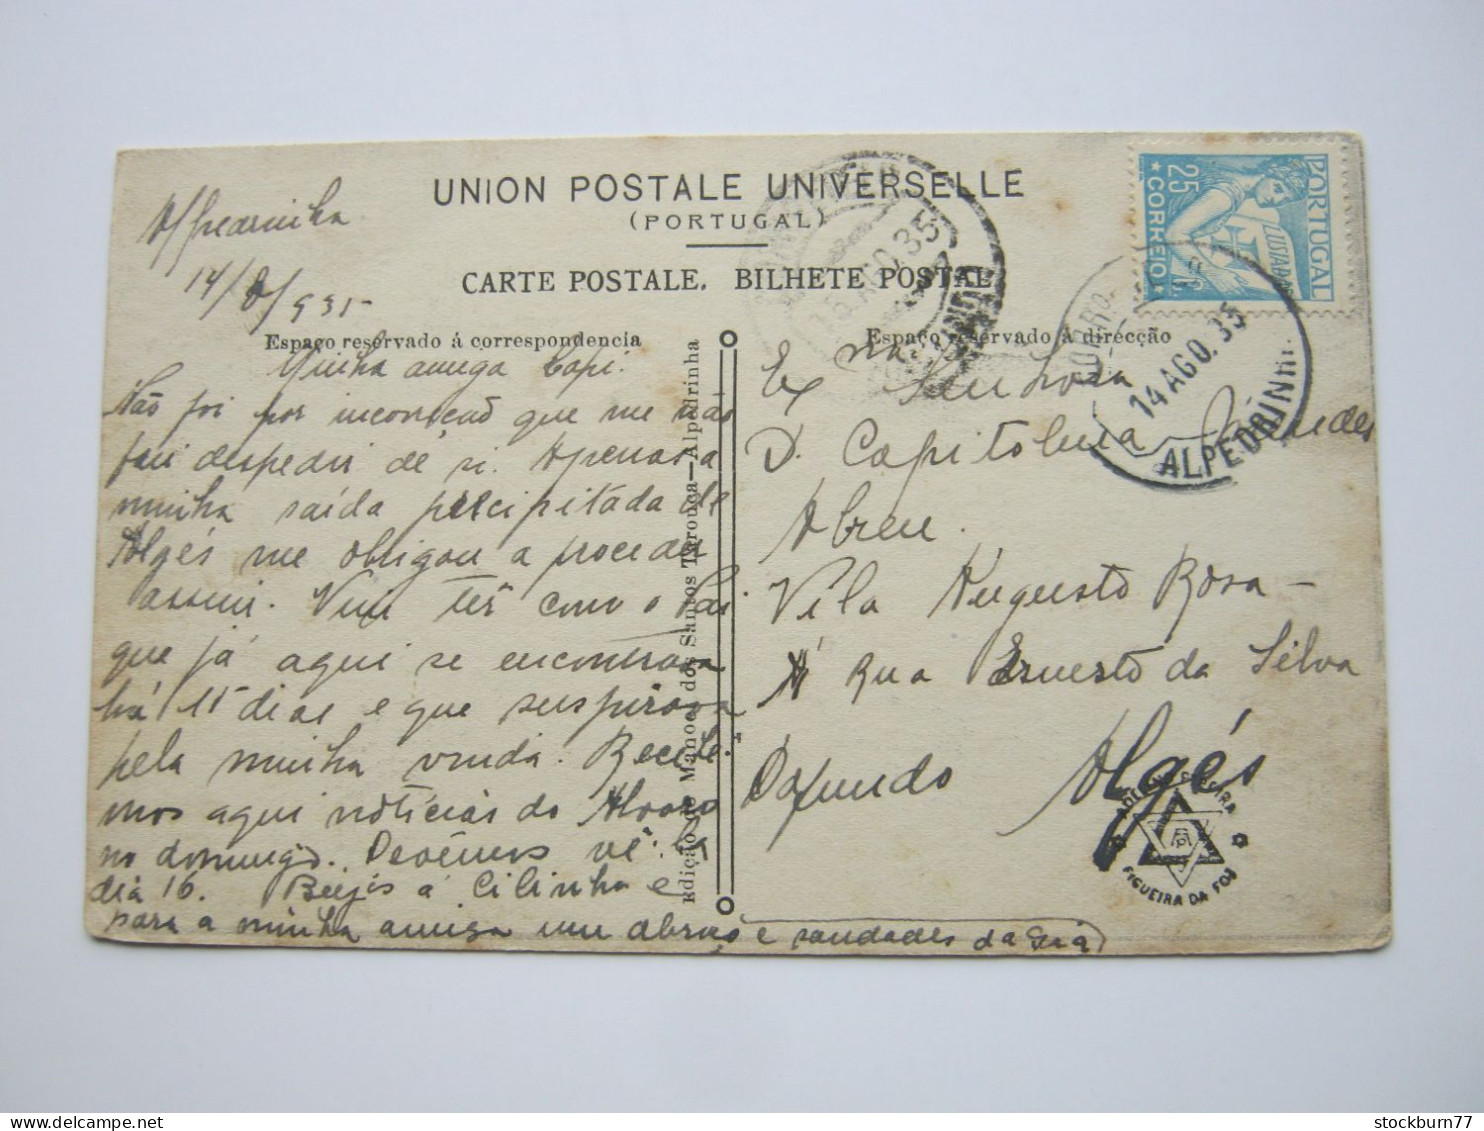 UNION POSTALE UNIVERSELLE
(PORTUGAL)
CARTE POSTALE. BILHETE POSTAL
Espaço reservado á correspondencia
Espaço reservado à direcção
Alpedrinha
14/8/935
Minha amiga Capi.
Não foi por incorreção que me não
fui despedir de si. Apenas a
minha saída percipitada de
Algés me obrigou a proceder
assim. Vim ter com o Pai
que já aqui se encontrava
há 15 dias e que suspirava
pela minha vinda. Recebe-
mos aqui notícias do Alvaro
no domingo. Devemos vê-lo
dia 16. Beijos á Cilinha e
para a minha amiga um abraço e saudades da
Edição de Manoel dos Santos Tarouca—Alpedrinha
Ex ma Senhora
D. Capitolina Mendes
Abreu.
Vila Augusto Rosa –
Á Rua Ernesto da Silva
Dafundo Algés
PORTUGAL
LUSIADAS
25 C. CORREIO
14 AGO. 35
ALPEDRINHA
15 AGO. 35
FIGUEIRA DA FOZ
stockburn77